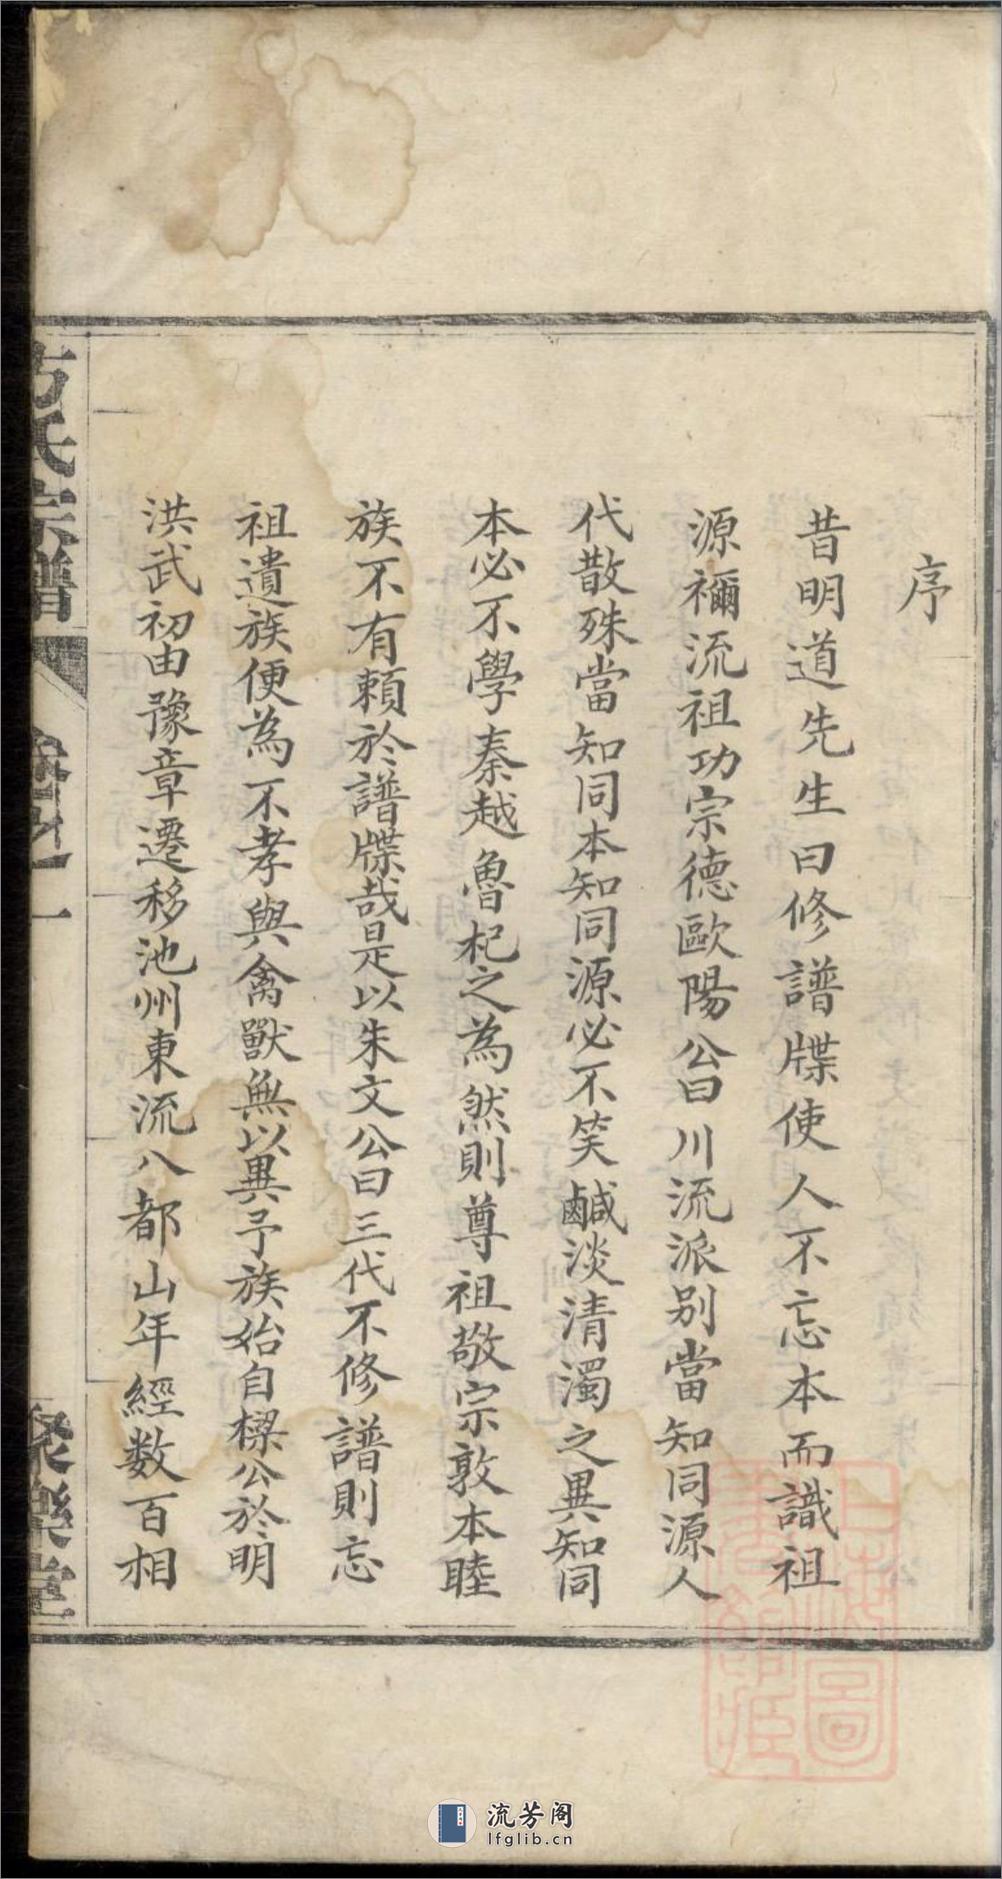 序
昔明道先生曰修譜牒使人不忘本而識祖
源禰流祖功宗德歐陽公曰川流派別當知同源人
代散殊當知同本知同源必不笑鹹淡清濁之異知同
本必不學秦越魯杞之為然則尊祖敬宗敦本睦
族不有賴於譜牒哉是以朱文公曰三代不修譜則忘
祖遺族便為不孝與禽獸無以異予族始自樑公於明
洪武初由豫章遷移池州東流八都山年經数百相
方氏宗譜
卷之一
聚樂堂
上海圖
流芳阁
lfglib.cn